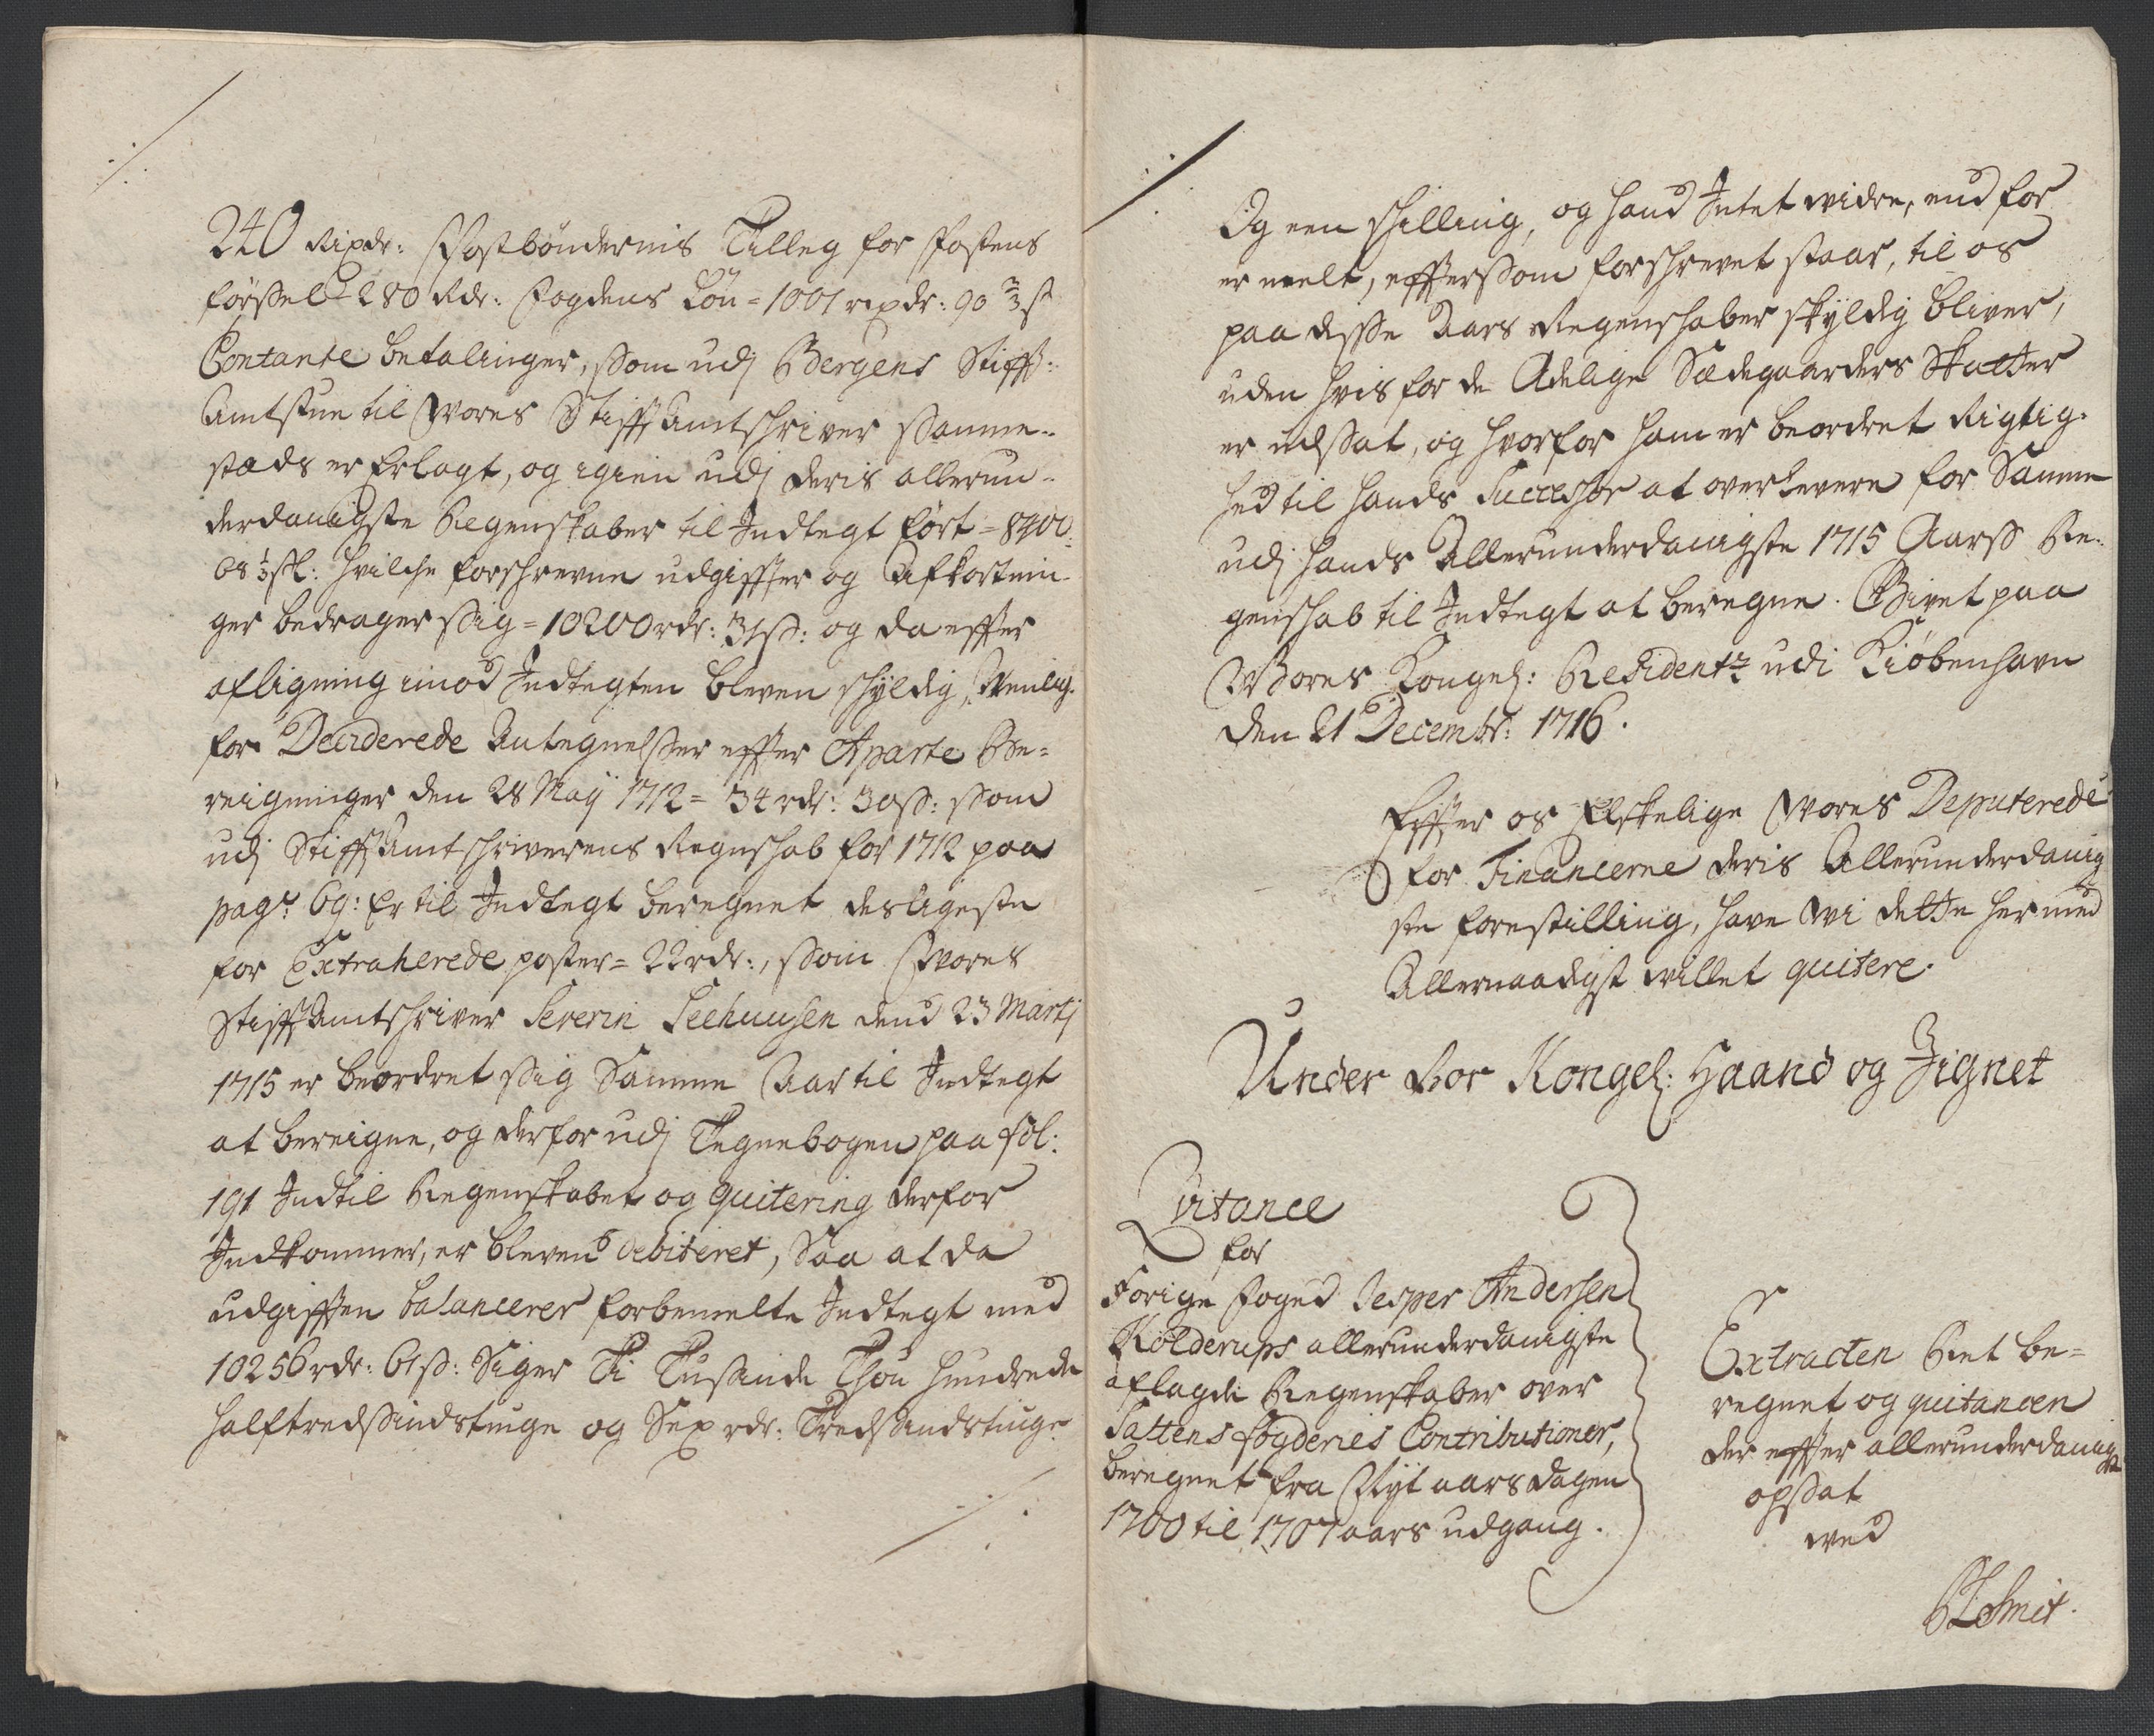 240 Rixdr: Postbøndernis Tilleg for Postens
førssel = 280 Rdr: Fogdens Løn = 1001 rixdr: 90 2/3 s
Contante betalinger, som udj Bergens Stifft-
Amtstue til Wores Stifft Amtschriver samme-
steds er Erlagt, og igien udj deris allerun-
derdanigste Regenskaber til Indtegt ført = 8400:
68 1/3 sk: hvilche forschrevne udgiffter og Afkortnin-
ger bedrager sig = 10200 rdr: 31 ss: og da effter
afligning imod Indtegten bleven schyldig, Nemlig
for Deciderede Antegnelsser effter Aparte Be-
reigninger den 28 Maij 1712 = 34 rdr: 30 ss: som
udj Stifft Amtschriverens Regnschab for 1712 paa
pag: 69: Er til Indtegt beregnet desligeste
for Extraherede poster = 22 rdr:, som Wores
Stifft Amtschriver Severin Seehuusen dend 23 Martj
1715 er beordret sig Samme Aar til Indtegt
at bereigne, og derfor udj Tegnebogen paa fol:
191 Indtil Regenskabet og quitering derfor
Indkommer, er bleven debiteret, Saa at da
udgifften balancerer forbemelte Indtegt med
10256 rdr: 61 ss: Siger Ti Tusinde Thou hundrede
halftredsindstiuge og Sex rdr: Tredsindstiuge
Og een schilling, og hand Intet widre, end for
er melt, efftersom forschrevet staar, til os
paa disse Aars Regenschaber skyldig bliver,
uden hvis for de Adelige Sædegaarders Skatter
er udssat, og hvorfor ham er beordret Rigtig-
hed til hands Successor at overlevere for Samme
udj hands Allerunderdanigste 1715 Aarss Re-
genschab til Indtegt at beregne. Givet paa
Wores Kongel: Residentz udi Kiøbenhavn
den 21 Decembr: 1716.
Effter os Elskelige Wores Deputerede
for Financerne deris Allerunderdanig
ste forestilling, have Wi dette hermed
Allernaadigst willet quitere.
Under Vor Kongel: Haand og Zignet
Qvitance
for
Forige Foged Jesper Andersen
Kolderups allerunderdanigste
aflagde Regenskaber over
Saltens fogderies Contributioner,
beregnet fra Nyt aars dagen
1700 til 1707 aars udgang.
Extracten Ret be-
regnet og quitancen
der effter allerunderdanigst
opssat
wed
Schmit.